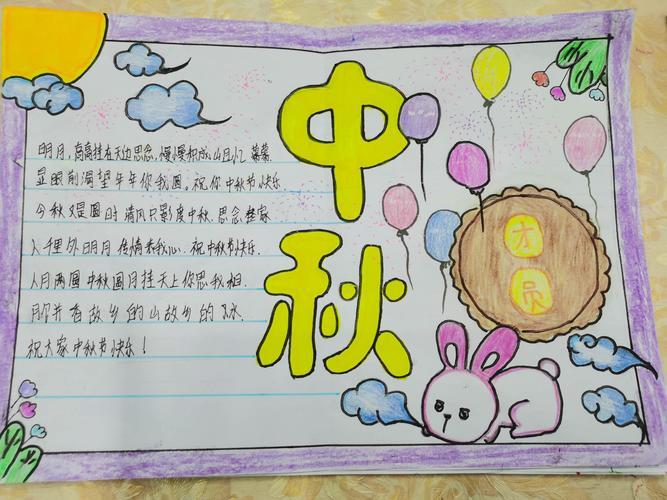 中秋
明月,高高挂在天边思念,慢慢积成山回忆 幕幕
显眼前渴望年年你我圆,祝你中秋节快乐
今秋又是圆时 清风只影度中秋.思念谁家
人千里外明月 传情表我心.祝中秋节快乐.
人月两圆 中秋圆月挂天上你思我想.
月并看故乡的山故乡的水.
祝大家中秋节快乐!